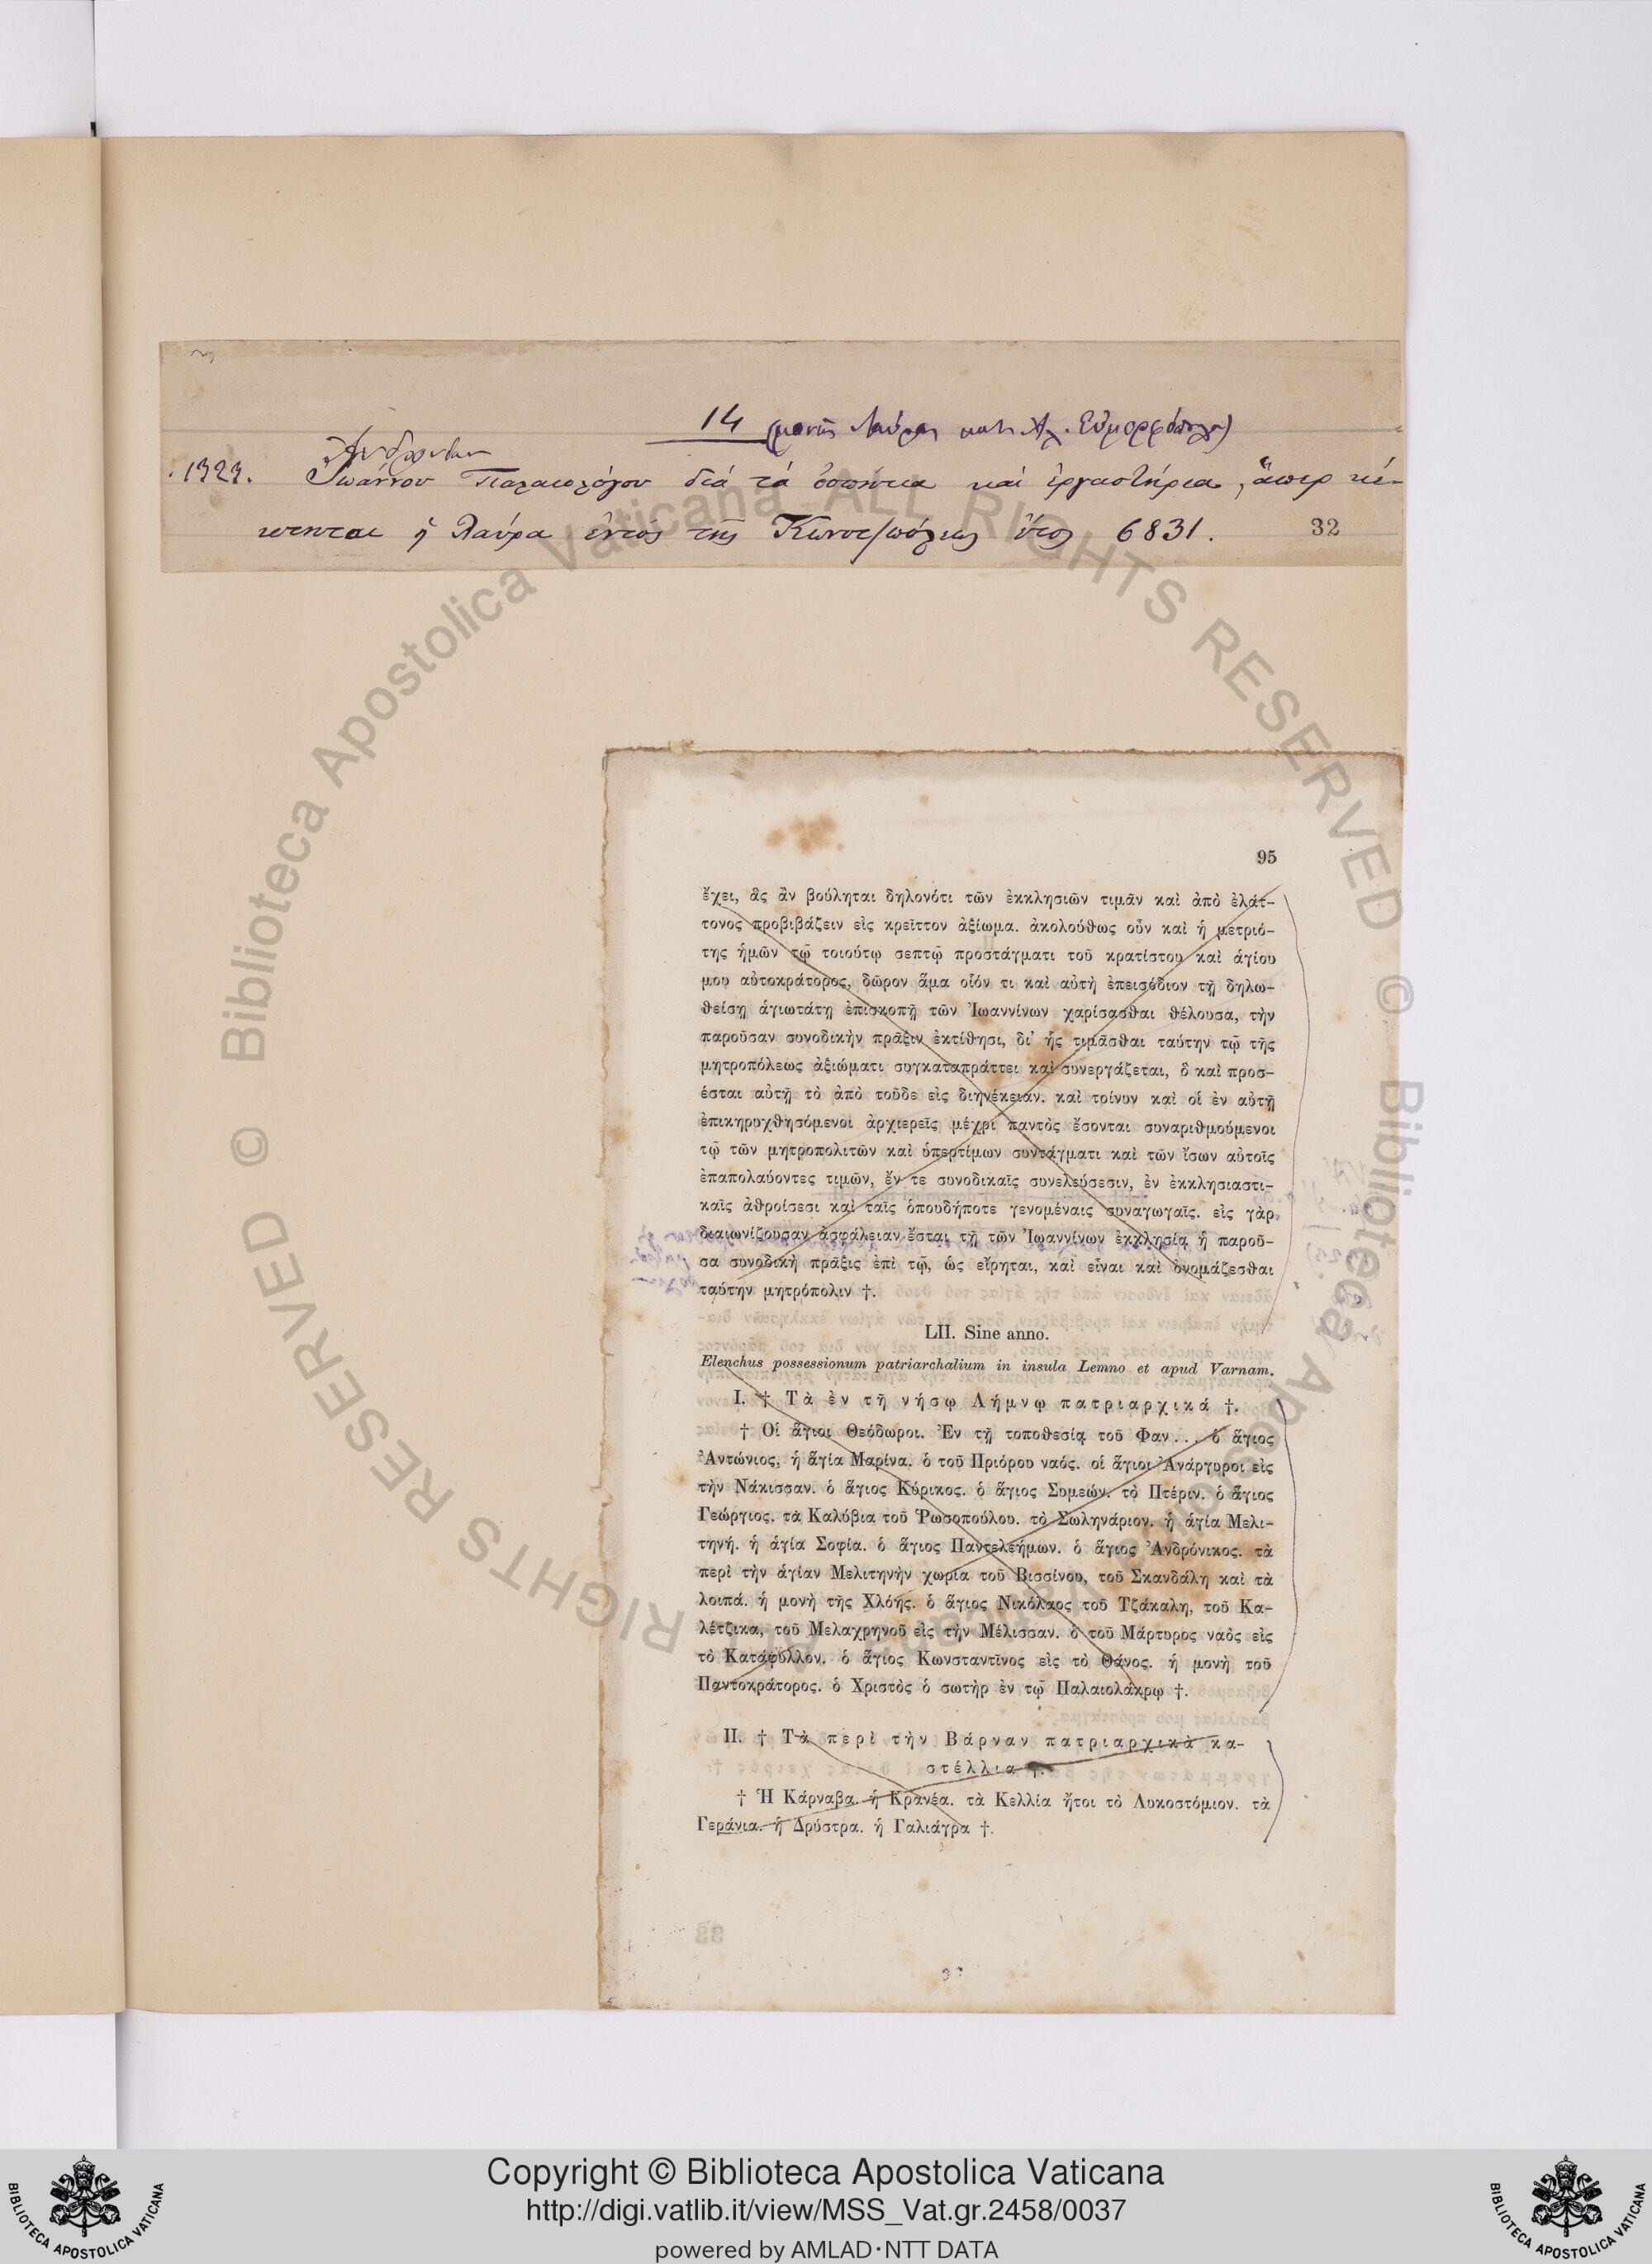 14 (μονῆς Λαύρας κατὰ Ἀλ. Εὐμορφόπουλο)
Ἀνδρονίκου
1323. Ἰωάννου Παλαιολόγου διά τά ὁσπήτια καί ἐργαστήρια, ἅπερ κέ-
κτηται ἡ Λαύρα ἐντός τῆς Κωνστ/πόλεως ἔτος 6831. 32
95
ἔχει, ἃς ἂν βούληται δηλονότι τῶν ἐκκλησιῶν τιμᾶν καὶ ἀπὸ ἐλάτ-
τονος προβιβάζειν εἰς κρεῖττον ἀξίωμα. ἀκολούθως οὖν καὶ ἡ μετριό-
της ἡμῶν τῷ τοιούτῳ σεπτῷ προστάγματι τοῦ κρατίστου καὶ ἁγίου
μου αὐτοκράτορος, δῶρον ἅμα οἷόν τι καὶ αὐτὴ ἐπεισόδιον τῇ δηλω-
θείσῃ ἁγιωτάτῃ ἐπισκοπῇ τῶν Ἰωαννίνων χαρίσασθαι θέλουσα, τὴν
παροῦσαν συνοδικὴν πρᾶξιν ἐκτίθησι, δι’ ἧς τιμᾶσθαι ταύτην τῷ τῆς
μητροπόλεως ἀξιώματι συγκαταπράττει καὶ συνεργάζεται, ὃ καὶ προσ-
έσται αὐτῇ τὸ ἀπὸ τοῦδε εἰς διηνέκειαν. καὶ τοίνυν καὶ οἱ ἐν αὐτῇ
ἐπικηρυχθησόμενοι ἀρχιερεῖς μέχρι παντὸς ἔσονται συναριθμούμενοι
τῷ τῶν μητροπολιτῶν καὶ ὑπερτίμων συντάγματι καὶ τῶν ἴσων αὐτοῖς
ἐπαπολαύοντες τιμῶν, ἔν τε συνοδικαῖς συνελεύσεσιν, ἐν ἐκκλησιαστι-
καῖς ἀθροίσεσι καὶ ταῖς ὁπουδήποτε γενομέναις συναγωγαῖς. εἰς γὰρ
διαιωνίζουσαν ἀσφάλειαν ἔσται τῇ τῶν Ἰωαννίνων ἐκκλησίᾳ ἡ παροῦ-
σα συνοδικὴ πρᾶξις ἐπὶ τῷ, ὡς εἴρηται, καὶ εἶναι καὶ ὀνομάζεσθαι
ταύτην μητρόπολιν †.
LII. Sine anno.
Elenchus possessionum patriarchalium in insula Lemno et apud Varnam.
I. † Τὰ ἐν τῇ νήσῳ Λήμνῳ πατριαρχικά †.
† Οἱ ἅγιοι Θεόδωροι. Ἐν τῇ τοποθεσίᾳ τοῦ Φαν... ὁ ἅγιος
Ἀντώνιος, ἡ ἅγία Μαρίνα. ὁ τοῦ Πριόρου ναός. οἱ ἅγιοι Ἀνάργυροι εἰς
τὴν Νάκισσαν. ὁ ἅγιος Κύρικος. ὁ ἅγιος Συμεών. τὸ Πτέριν. ὁ ἅγιος
Γεώργιος. τὰ Καλύβια τοῦ Ῥωσοπούλου. τὸ Σωληνάριον. ἡ ἁγία Μελι-
τηνή. ἡ ἁγία Σοφία. ὁ ἅγιος Παντελεήμων. ὁ ἅγιος Ἀνδρόνικος. τὰ
περὶ τὴν ἁγίαν Μελιτηνὴν χωρία τοῦ Βισσίνου, τοῦ Σκανδάλη καὶ τὰ
λοιπά. ἡ μονὴ τῆς Χλόης. ὁ ἅγιος Νικόλαος τοῦ Τζάκαλη, τοῦ Κα-
λέτζικα, τοῦ Μελαχρηνοῦ εἰς τὴν Μέλισσαν. ὁ τοῦ Μάρτυρος ναὸς εἰς
τὸ Κατάφυλλον. ὁ ἅγιος Κωνσταντῖνος εἰς τὸ Θάνος. ἡ μονὴ τοῦ
Παντοκράτορος. ὁ Χριστὸς ὁ σωτὴρ ἐν τῷ Παλαιολάκρῳ †.
II. † Τὰ περὶ τὴν Βάρναν πατριαρχικὰ κα-
στέλλια †.
† Ἡ Κάρναβα. ἡ Κρανέα. τὰ Κελλία ἤτοι τὸ Λυκοστόμιον. τὰ
Γεράνια. ἡ Δρύστρα. ἡ Γαλιάγρα †.
Copyright © Biblioteca Apostolica Vaticana
http://digi.vatlib.it/view/MSS_Vat.gr.2458/0037
powered by AMLAD·NTT DATA